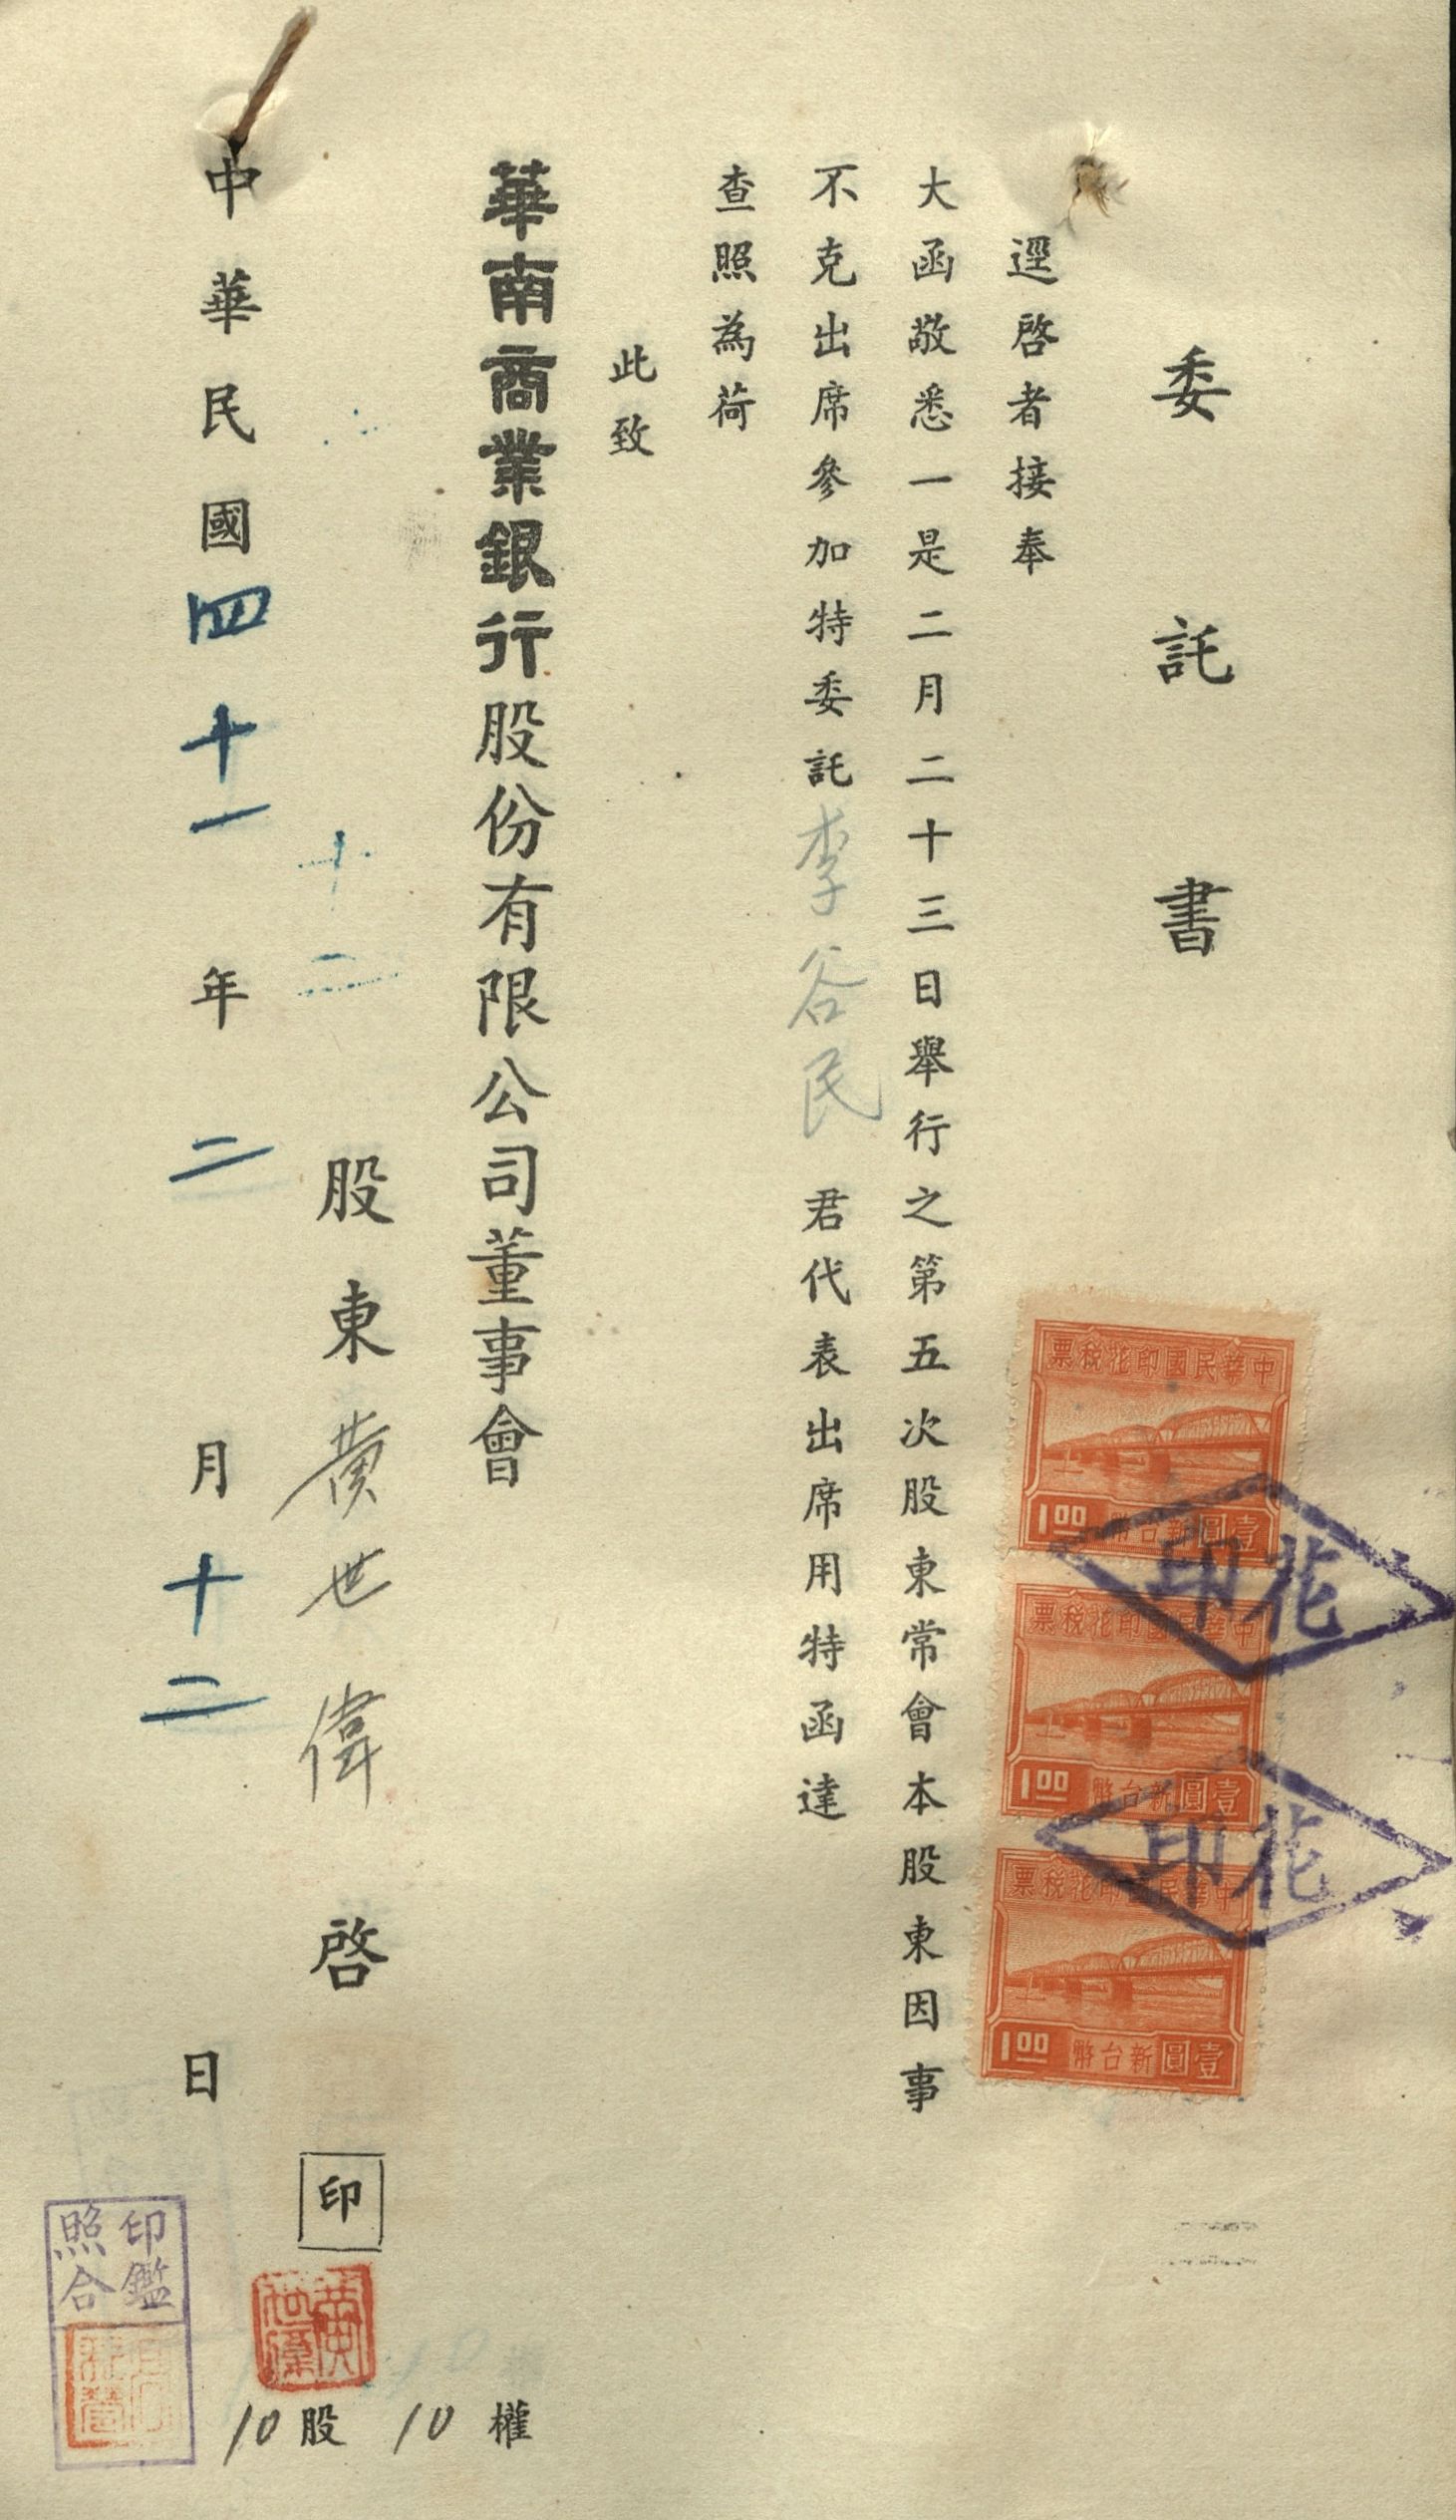 委託書
逕啓者接奉
大函敬悉一是二月二十三日舉行之第五次股東常會本股東因事
不克出席參加特委託李谷民君代表出席用特函達
查照為荷
此致
華南商業銀行股份有限公司董事會
股東黃世偉啓印
黃世偉
10股 10權
中華民國四十一年二月十二日
印鑑照合
中華民國印花稅票
1.00 新台幣壹圓
中華民國印花稅票
1.00 新台幣壹圓
中華民國印花稅票
1.00 新台幣壹圓
印花
印花